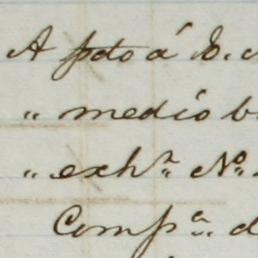 A pdo á S.
" medio b
" exhn. No.
Compa. d